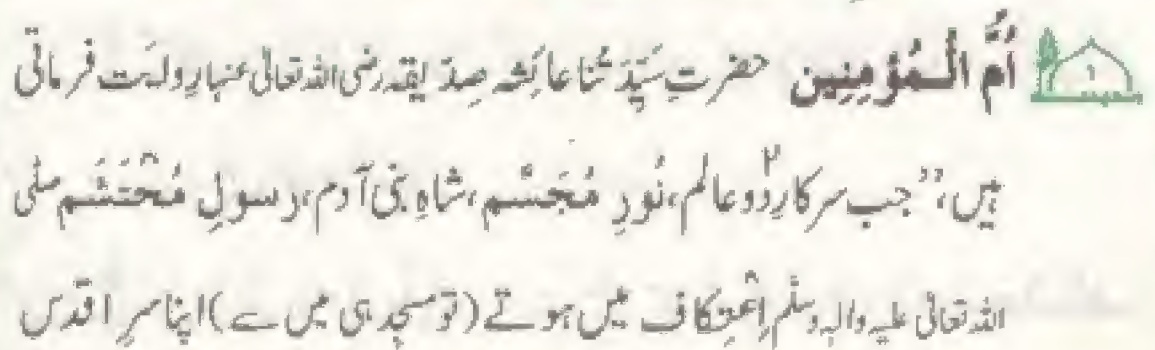 اُمُّ الْمُؤْمِنِین حضرتِ سَیِّدَتُنا عائِشہ صِدّیقہ رضی اللہ تعالیٰ عنہا رِوایَت فرماتی
ہیں، ’’جب سرکارِ دُو عالم، نُورِ مُجَسَّم، شاہِ بنی آدم، رسولِ مُحْتَشَم صلی
اللہ تعالیٰ علیہ والہٖ وسلم اِعْتِکاف میں ہوتے (تو مسجد ہی میں سے) اپنا سرِ اقدس